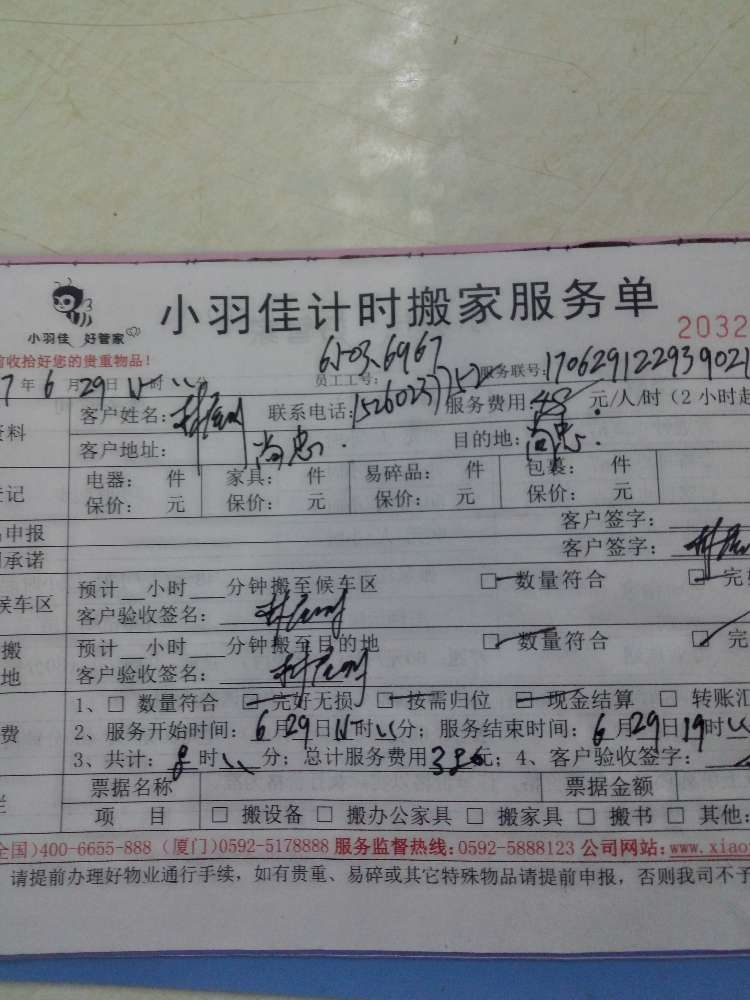 小羽佳 好管家
小羽佳计时搬家服务单
2032
前收拾好您的贵重物品！
员工工号：6503.6967
服务联号：170629122939021
7年6月29日 时 分
资料
客户姓名： 联系电话：15260237752 服务费用：48元/人/时（2小时起
客户地址：尚忠. 目的地：尚忠.
登记
电器： 件 家具： 件 易碎品： 件 包裹： 件
保价： 元 保价： 元 保价： 元 保价： 元
申报 客户签字：
承诺 客户签字：
候车区
预计__小时___分钟搬至候车区 □数量符合 □完
客户验收签名：
搬
地
预计__小时___分钟搬至目的地 □数量符合 □完
客户验收签名：
费
1、□ 数量符合 □完好无损 □按需归位 □现金结算 □ 转账汇
2、服务开始时间：6月29日 时 分；服务结束时间：6月29日19时
3、共计： 时 分；总计服务费用 元；4、客户验收签字：
栏
票据名称 票据金额
项 目 □ 搬设备 □ 搬办公家具 □ 搬家具 □ 搬书 □ 其他：
全国)400-6655-888 (厦门)0592-5178888 服务监督热线:0592-5888123 公司网站:www.xiao
请提前办理好物业通行手续，如有贵重、易碎或其它特殊物品请提前申报，否则我司不予